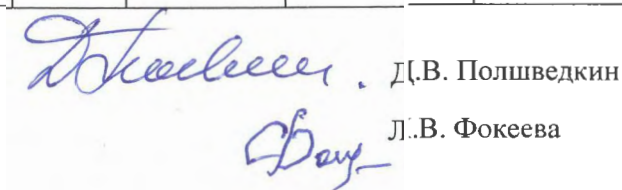 Д.В. Полшведкин
Л.В. Фокеева